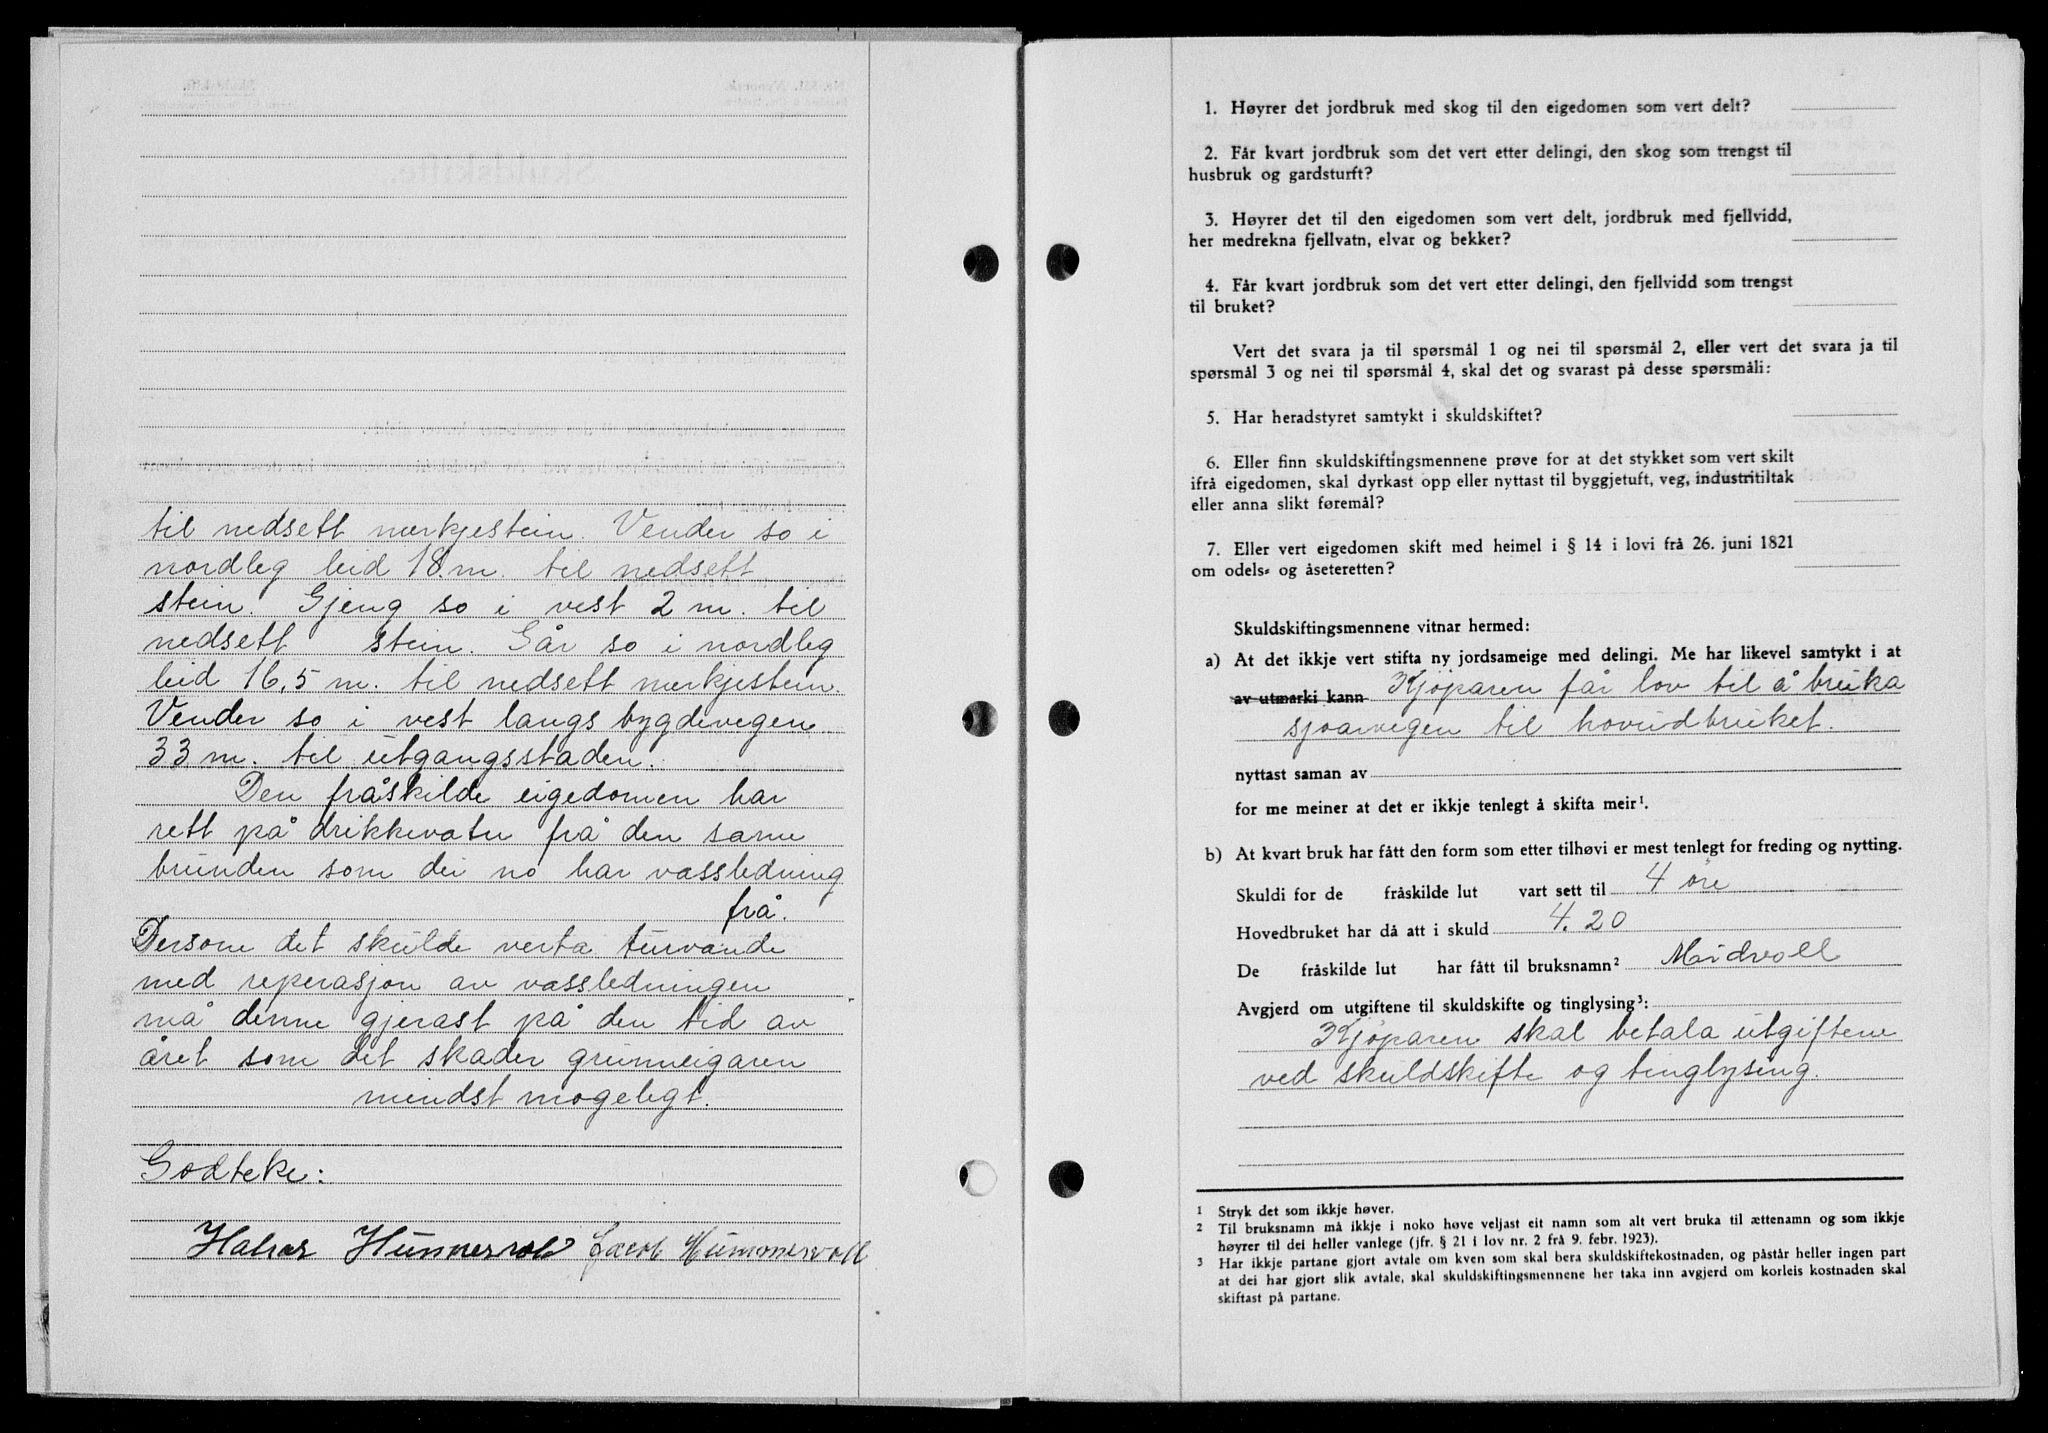 til nedsett merkjestein. Vender so i
nordleg leid 18 m. til nedsett
stein. Gjeng so i vest 2 m. til
nedsett stein. Går so i nordleg
leid 16,5 m. til nedsett merkjestein.
Vender so i vest langs bygdevegen
33 m. til utgangsstaden.
Den fråskilde eigedomen har
rett på drikkevatn frå den same
brunden som dei no har vassledning
frå.
Dersom det skulde verta turvande
med reperasjon av vassledningen
må denne gjerast på den tid av
året som det skader grunneigaren
mindst mogelegt.
Godteke:
Halvor Hummervoll Jacob Hummervoll
1. Høyrer det jordbruk med skog til den eigedomen som vert delt?
2. Får kvart jordbruk som det vert etter delingi, den skog som trengst til
husbruk og gardsturft?
3. Høyrer det til den eigedomen som vert delt, jordbruk med fjellvidd,
her medrekna fjellvatn, elvar og bekker?
4. Får kvart jordbruk som det vert etter delingi, den fjellvidd som trengst
til bruket?
Vert det svara ja til spørsmål 1 og nei til spørsmål 2, eller vert det svara ja til
spørsmål 3 og nei til spørsmål 4, skal det og svarast på desse spørsmåli:
5. Har heradstyret samtykt i skuldskiftet?
6. Eller finn skuldskiftingsmennene prøve for at det stykket som vert skilt
ifrå eigedomen, skal dyrkast opp eller nyttast til byggjetuft, veg, industritiltak
eller anna slikt føremål?
7. Eller vert eigedomen skift med heimel i § 14 i lovi frå 26. juni 1821
om odels- og åseteretten?
Skuldskiftingsmennene vitnar hermed:
a) At det ikkje vert stifta ny jordsameige med delingi. Me har likevel samtykt i at
av utmarki kann Kjöparen får lov til å bruka
sjoarvegen til hovudbruket.
nyttast saman av
for me meiner at det er ikkje tenlegt å skifta meir¹.
b) At kvart bruk har fått den form som etter tilhøvi er mest tenlegt for freding og nytting.
Skuldi for de fråskilde lut vart sett til 4 öre
Hovedbruket har då att i skuld 4.20
De fråskilde lut har fått til bruksnamn² Midvoll
Avgjerd om utgiftene til skuldskifte og tinglysing³:
Kjöparen skal betala utgiftene
ved skuldskifte og tinglysing.
1 Stryk det som ikkje høver.
2 Til bruksnamn må ikkje i noko høve veljast eit namn som alt vert bruka til ættenamn og som ikkje
høyrer til dei heller vanlege (jfr. § 21 i lov nr. 2 frå 9. febr. 1923).
3 Har ikkje partane gjort avtale om kven som skal bera skuldskiftekostnaden, og påstår heller ingen part
at dei har gjort slik avtale, skal skuldskiftingsmennene her taka inn avgjerd om korleis kostnaden skal
skiftast på partane.